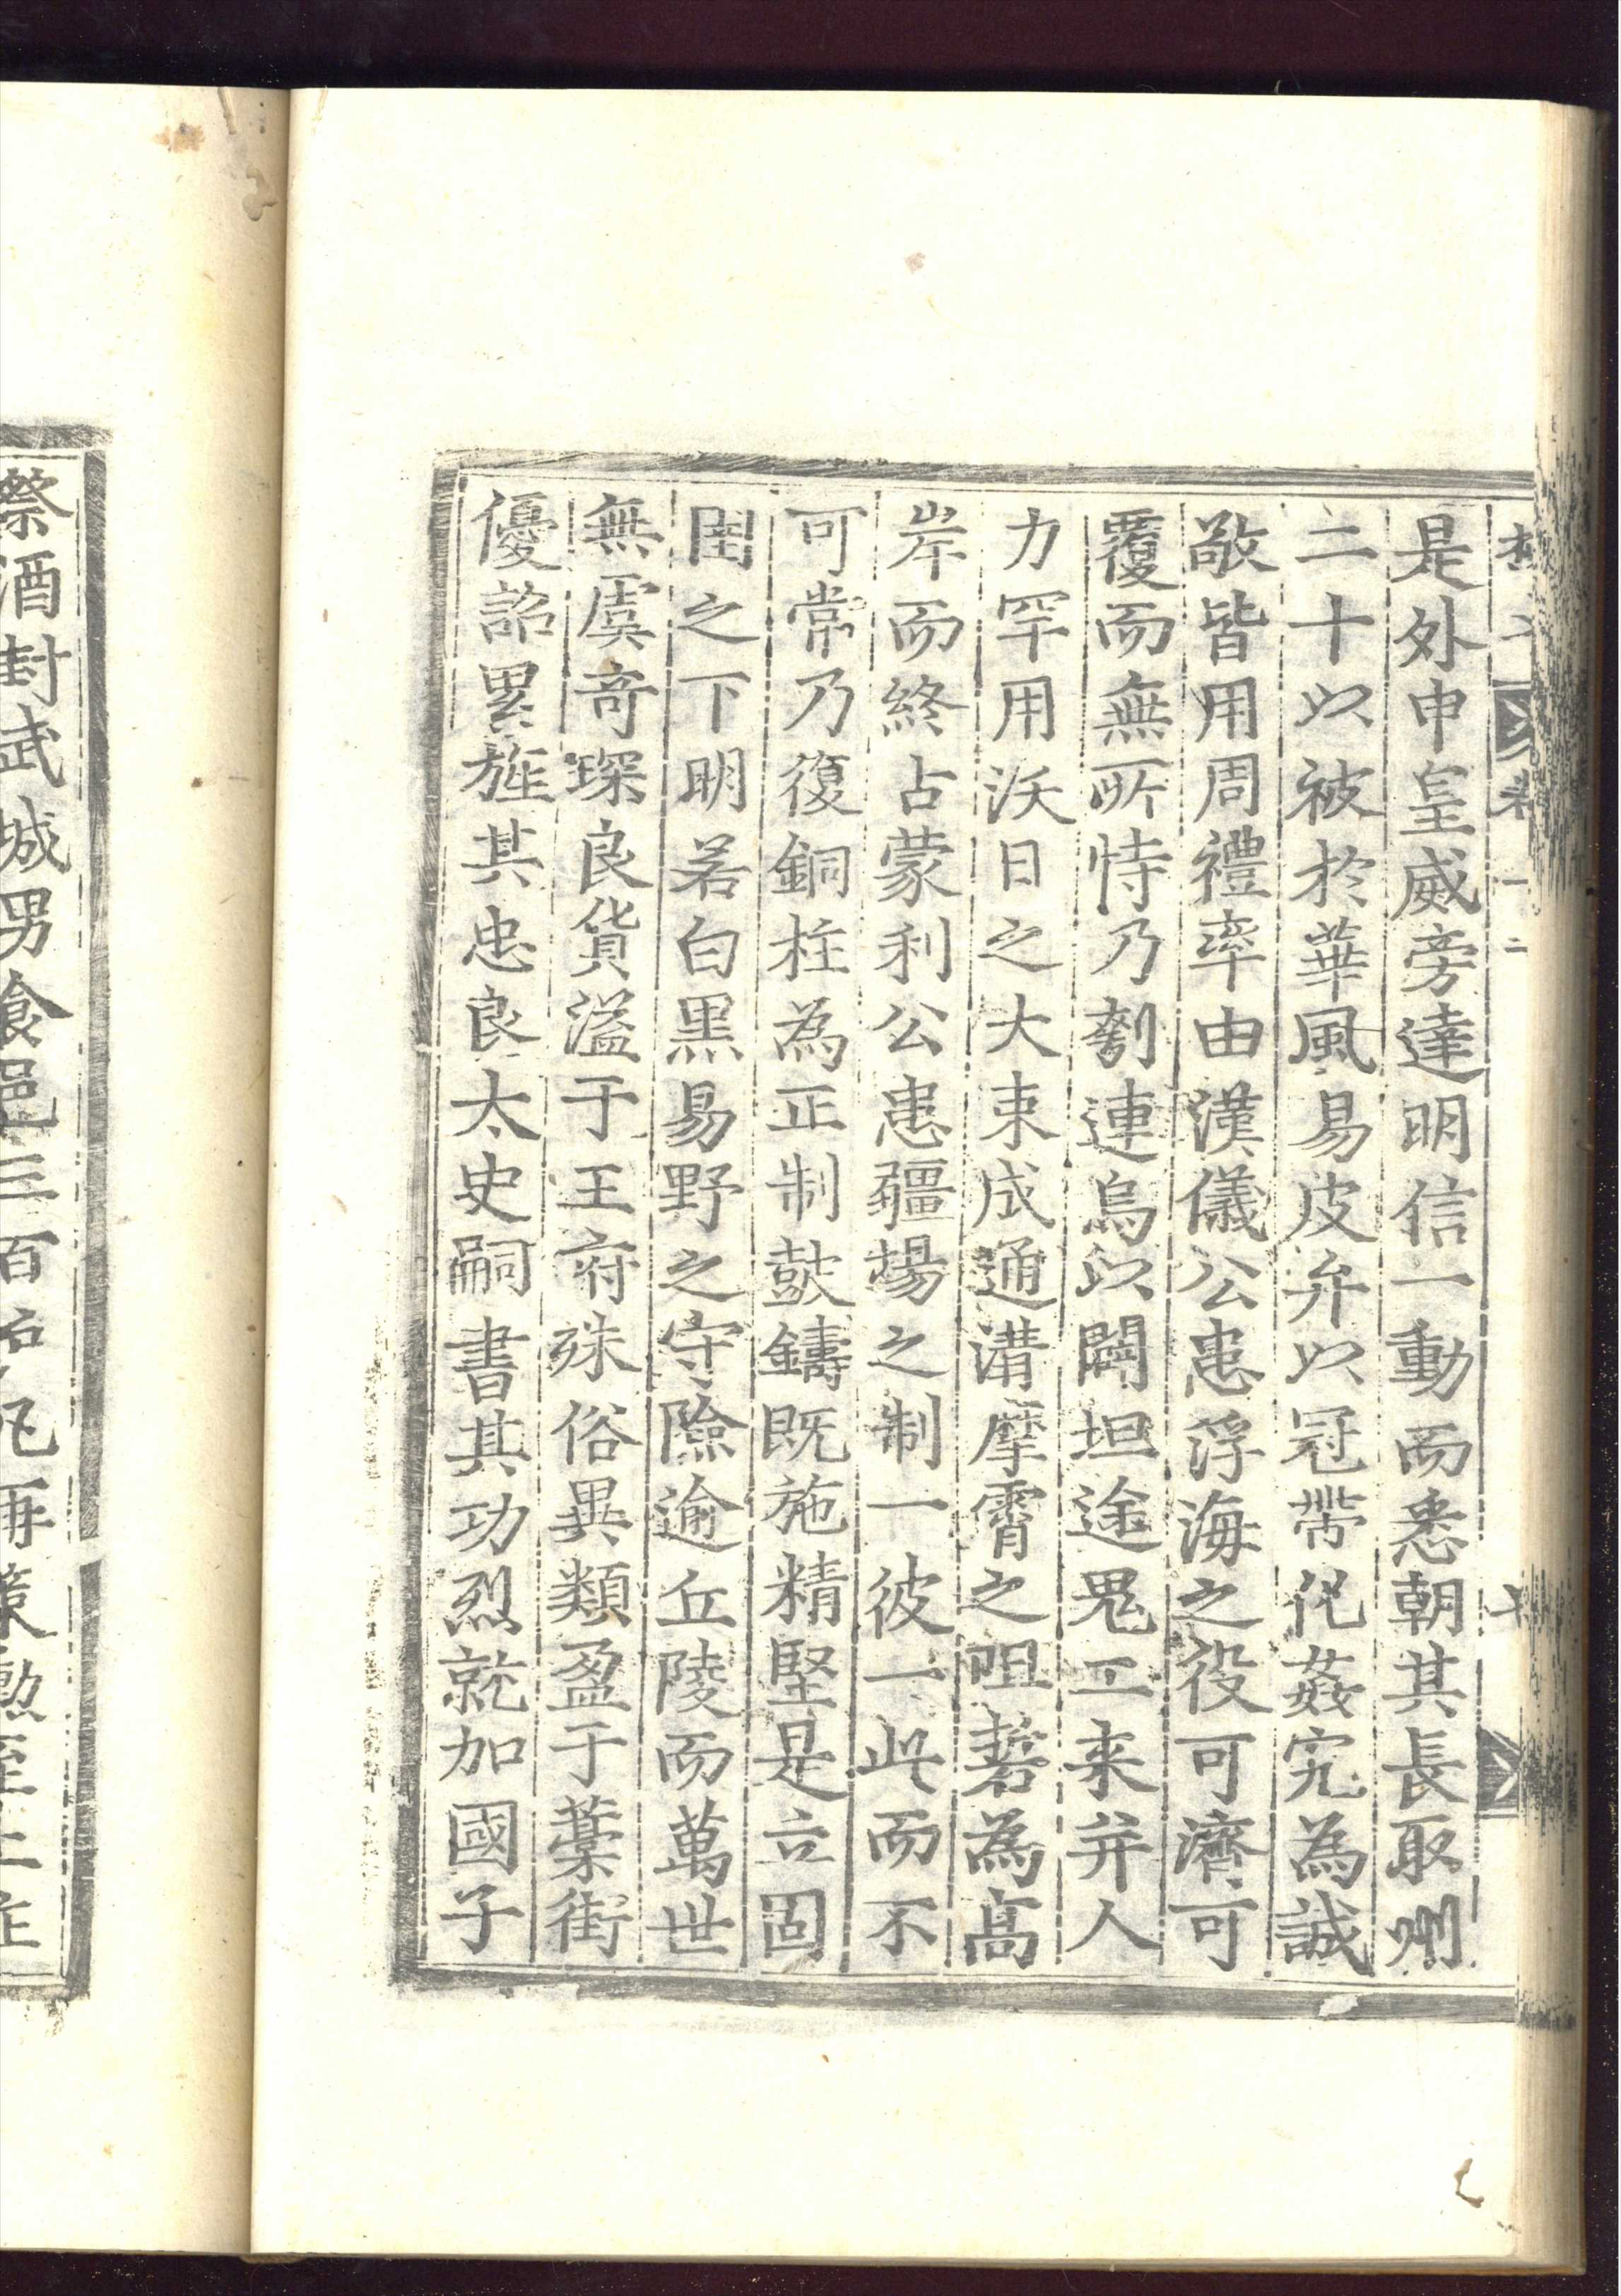 是外申皇威旁達明信一動而悉朝其長取州
二十以被於華風易皮弁以冠帶化姦宄為誠
敬皆用周禮率由漢儀公患浮海之役可濟可
覆而無所恃乃刳連烏以闢坦途鬼工来并人
力罕用沃日之大束成通溝摩霄之阻䃥為高
岸而終占蒙利公患疆場之制一彼一此而不
可常乃復銅柱為正制鼓鑄既施精堅是立固
圉之下明若白黑易野之守險逾丘陵而萬世
無虞奇琛良貨溢于王府殊俗異類盈于藁街
優詔累旌其忠良太史嗣書其功烈就加國子
祭酒封武城男食邑三百戶凡再策勲至上柱